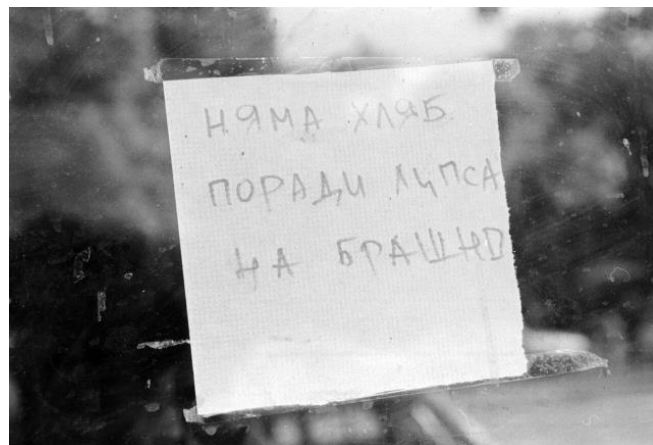 НЯМА ХЛЯБ
ПОРАДИ ЛИПСА
НА БРАШНО